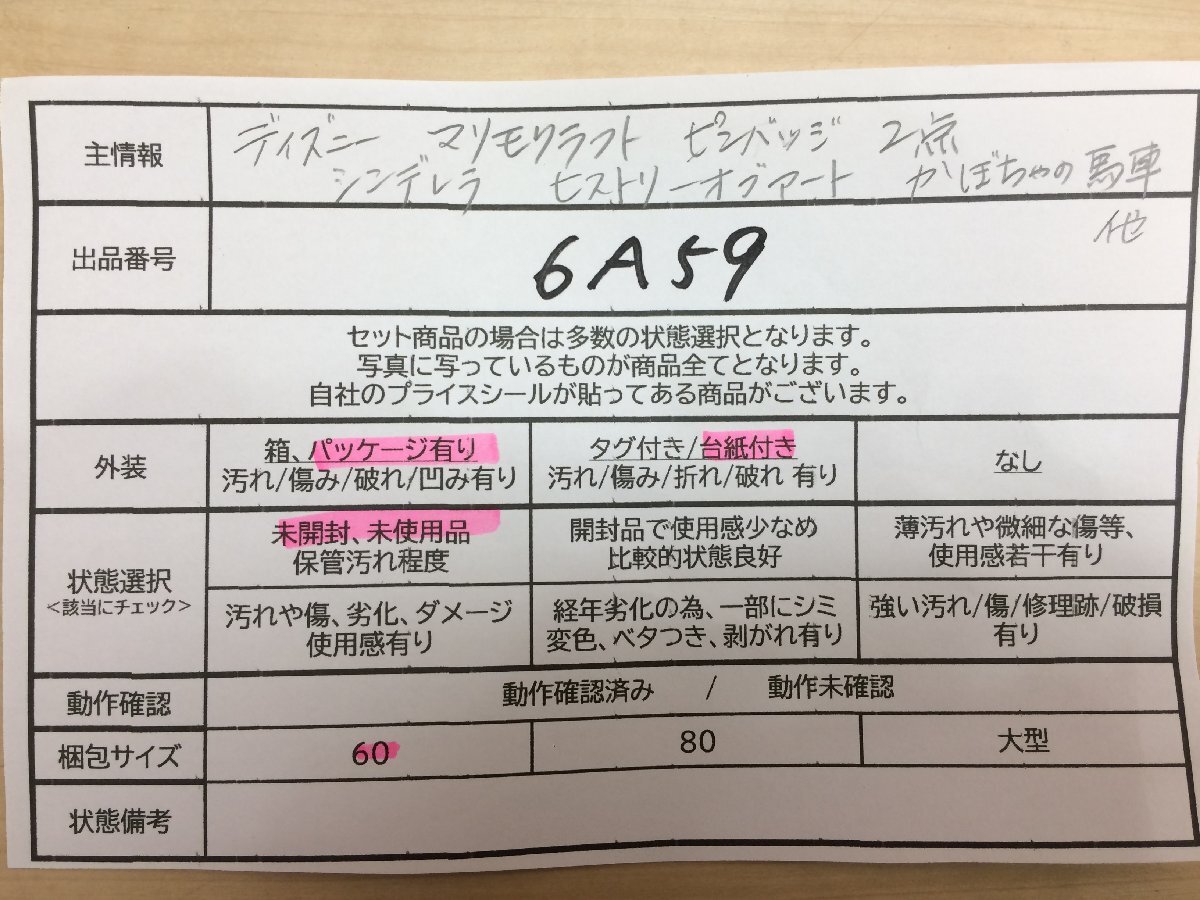 主情報
ディズニー マリモクラフト ピンバッジ 2点
シンデレラ ヒストリーオブアート かぼちゃの馬車
他
出品番号
6A59
セット商品の場合は多数の状態選択となります。
写真に写っているものが商品全てとなります。
自社のプライスシールが貼ってある商品がございます。
外装
箱、パッケージ有り
汚れ/傷み/破れ/凹み有り
タグ付き/台紙付き
汚れ/傷み/折れ/破れ 有り
なし
状態選択
<該当にチェック>
未開封、未使用品
保管汚れ程度
開封品で使用感少なめ
比較的状態良好
薄汚れや微細な傷等、
使用感若干有り
汚れや傷、劣化、ダメージ
使用感有り
経年劣化の為、一部にシミ
変色、ベタつき、剥がれ有り
強い汚れ/傷/修理跡/破損
有り
動作確認
動作確認済み / 動作未確認
梱包サイズ
60
80
大型
状態備考